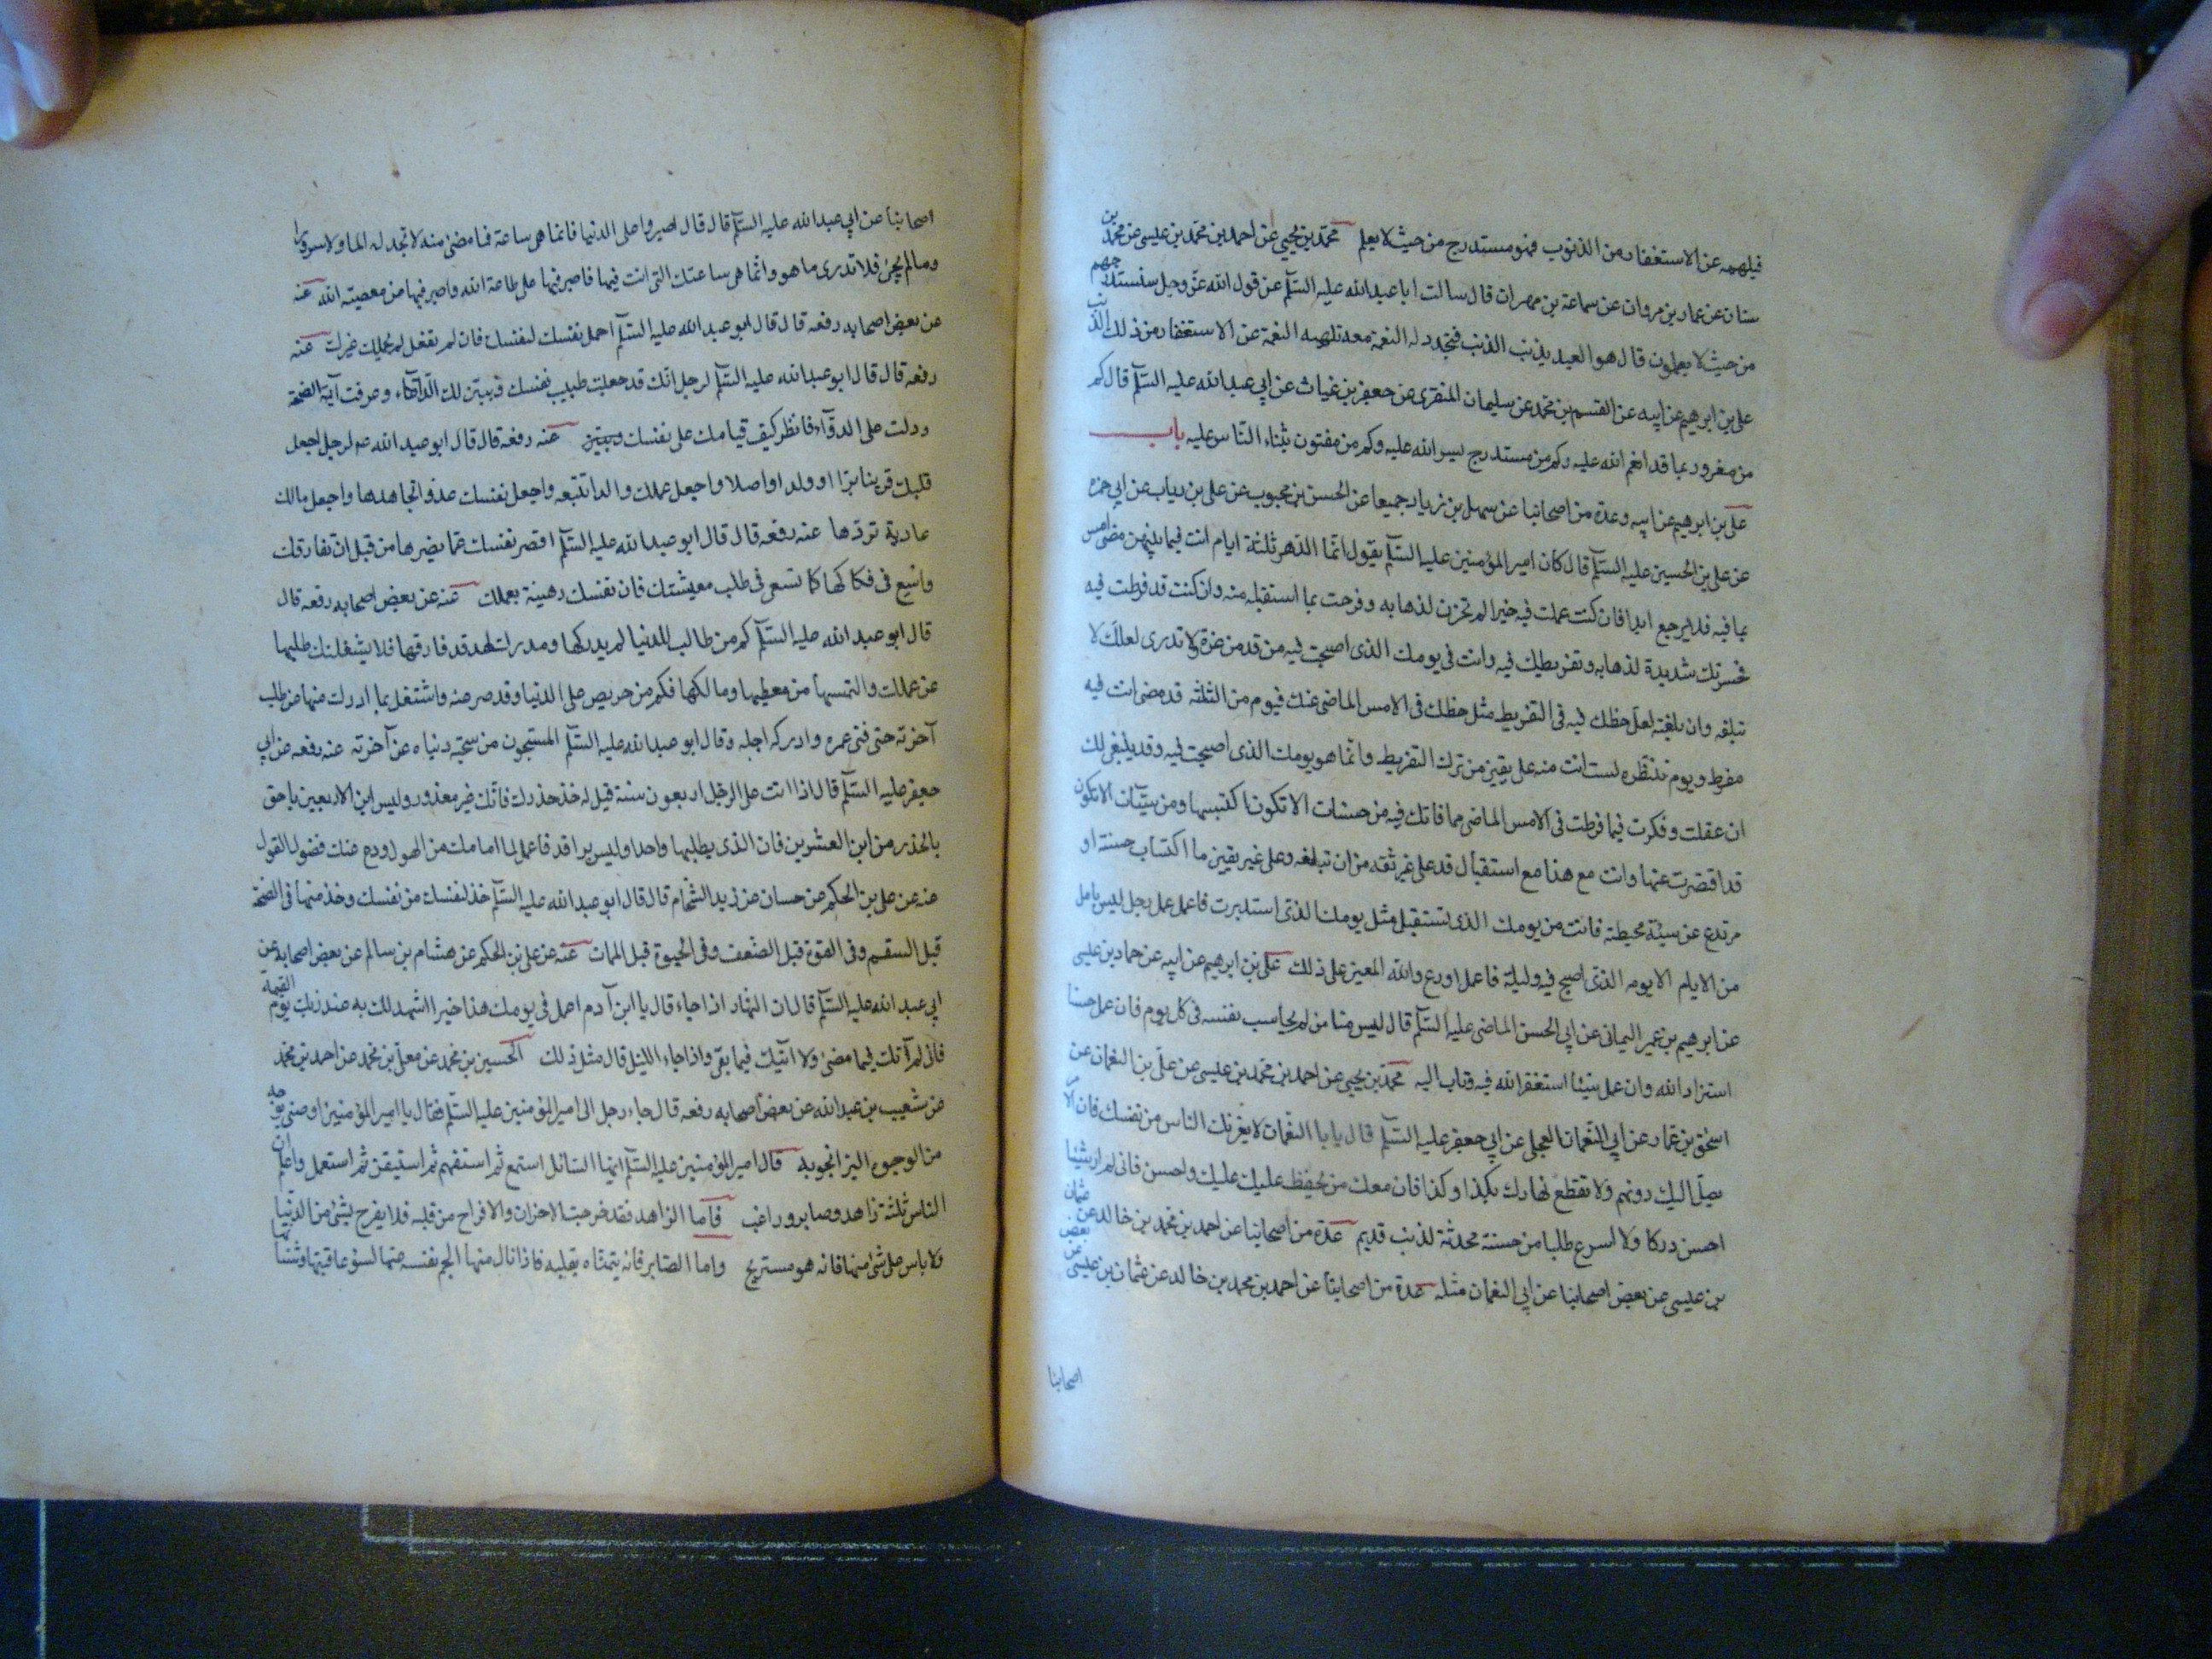 فيلهيه عن الاستغفار من الذنوب فهو مستدرج من حيث لا يعلم محمد بن يحيى عن احمد بن محمد بن عيسى عن محمد بن
سنان عن عمار بن مروان عن سماعة بن مهران قال سالت ابا عبد الله عليه السلم عن قول الله عز وجل سنستدرجهم
من حيث لا يعلمون قال هو العبد يذنب الذنب فتجدد له النعمة معه تلهيه النعمة عن الاستغفار من ذلك الذنب
على بن ابرهيم عن ابيه عن القسم بن محمد عن سليمان المنقرى عن حفص بن غياث عن ابي عبد الله عليه السلم قال كم
من مغرور بما قد انعم الله عليه وكم من مستدرج بستر الله عليه وكم من مفتون بثناء الناس عليه باب
على بن ابرهيم عن ابيه وعدة من اصحابنا عن سهل بن زياد جميعا عن الحسن بن محبوب عن على بن رياب عن ابي حمزه
عن على بن الحسين عليه السلم قال كان امير المؤمنين عليه السلم يقول انما الدهر ثلثة ايام انت فيما بينهن مضى امس
بما فيه فلا يرجع ابدا فان كنت عملت فيه خيرا لم تحزن لذهابه وفرحت بما استقبله منه وان كنت قد فرطت فيه
فحسرتك شديدة لذهابه وتفريطك فيه وانت فى يومك الذى اصبحت فيه من غد من غرة ولا تدرى لعلك لا
تبلغه وان بلغته لعل حظك فيه فى التفريط مثل حظك فى الامس الماضى عنك فيوم من الثلثة قد مضى انت فيه
مفرط ويوم تنتظره لست انت منه على يقين من ترك التفريط وانما هو يومك الذى اصبحت فيه وقد ينبغى لك
ان عقلت وفكرت فيما فرطت فى الامس الماضى مما فاتك فيه من حسنات الا تكون اكتسبها ومن سيئات الا تكون
قد اقصرت عنها وانت مع هذا مع استقبال غد على غير ثقة من ان تبلغه وعلى غير يقين ما اكتساب حسنة او
مرتدع عن سيئة محيطة فانت من يومك الذى تستقبل مثل يومك الذى استدبرت فاعمل عمل رجل ليس يامل
من الايام الا يومه الذى اصبح فيه وليلته فاعمل او دع والله المعين على ذلك على بن ابرهيم عن ابيه عن حماد بن عيسى
عن ابرهيم بن عمر اليمانى عن ابي الحسن الماضى عليه السلم قال ليس منا من لم يحاسب نفسه فى كل يوم فان عمل حسنا
استزاد الله وان عمل سيئا استغفر الله فيه وتاب اليه محمد بن يحيى عن احمد بن محمد بن عيسى عن على بن النعمان عن
اسحق بن عمار عن ابي النعمان العجلى عن ابي جعفر عليه السلم قال يا با النعمان لا يغرنك الناس من نفسك فان الامر
يصل اليك دونهم ولا تقطع نهارك بكذا وكذا فان معك من يحفظ عليك عليك واحسن فانى لم ار شيئا
احسن دركا ولا اسرع طلبا من حسنة محدثة لذنب قديم عدة من اصحابنا عن احمد بن محمد بن خالد عن عثمان
بن عيسى عن بعض اصحابنا عن ابي النعمان مثله عدة من اصحابنا عن احمد بن محمد بن خالد عن عثمان بن عيسى عن بعض
اصحابنا
اصحابنا عن ابي عبد الله عليه السلم قال قال اصبروا على الدنيا فانما هى ساعة فما مضى منه لا تجد له الما ولا سرورا
وما لم يجئ فلا تدرى ما هو وانما هى ساعتك التى انت فيها فاصبر فيها على طاعة الله واصبر فيها من معصية الله عنه
عن بعض اصحابه رفعه قال قال ابو عبد الله عليه السلم احمل نفسك لنفسك فان لم تفعل لم يحملك غيرك عنه
رفعه قال قال ابو عبد الله عليه السلم لرجل انك قد جعلت طبيب نفسك وبين لك الداء وعرفت آية الصحة
ودلت على الدواء فانظر كيف قيامك على نفسك عنه رفعه قال قال ابو عبد الله ع لرجل اجعل
قلبك قرينا برا او ولدا واصلا واجعل عملك والدا تتبعه واجعل نفسك عدوا تجاهدها واجعل مالك
عارية تردها عنه رفعه قال قال ابو عبد الله عليه السلم اقصر نفسك عما يضرها من قبل ان تفارقك
واسع فى فكاكها كما تسعى فى طلب معيشتك فان نفسك رهينة بعملك عنه عن بعض اصحابه رفعه قال
قال ابو عبد الله عليه السلم كم من طالب للدنيا لم يدركها ومدرك لها قد فارقها فلا يشغلنك طلبها
عن عملك والتمسها من معطيها ومالكها فكم من حريص على الدنيا وقد صرعته واشتغل بما ادرك منها عن طلب
آخرته حتى فنى عمره وادركه اجله وقال ابو عبد الله عليه السلم المسجون من سجنته دنياه عن آخرته عنه رفعه عن ابي
جعفر عليه السلم قال اذا اتت على الرجل اربعون سنة قيل له خذ حذرك فانك غير معذور وليس ابن الاربعين باحق
بالحذر من ابن العشرين فان الذى يطلبهما واحد وليس براقد فاعمل لما امامك من الهول ودع عنك فضول القول
عنه عن على بن الحكم عن حسان عن زيد الشحام قال قال ابو عبد الله عليه السلم خذ لنفسك من نفسك وخذ منها فى الصحة
قبل السقم وفى القوة قبل الضعف وفى الحيوة قبل الممات عنه عن على بن الحكم عن هشام بن سالم عن بعض اصحابه عن
ابي عبد الله عليه السلم قال ان النهار اذا جاء قال يا ابن آدم اعمل فى يومك هذا خيرا اشهد لك به عند ربك يوم القيمة
فانى لم آتك فيما مضى ولا آتيك فيما بقى واذا جاء الليل قال مثل ذلك الحسين بن محمد عن معلى بن محمد عن احمد بن محمد
عن شعيب بن عبد الله عن بعض اصحابه رفعه قال جاء رجل الى امير المؤمنين عليه السلم فقال يا امير المؤمنين اوصنى بوجه
من الوجوه البر انجو به قال امير المؤمنين عليه السلم ايها السائل استمع ثم استفهم ثم استيقن ثم استعمل واعلم ان
الناس ثلثة زاهد وصابر وراغب فاما الزاهد فقد خرجت الاحزان والافراح من قلبه فلا يفرح بشئ من الدنيا
ولا ياس على شئ منها فاته فهو مستريح واما الصابر فانه يتمناه بقلبه فاذا نال منها الجم نفسه عنها لسوء عاقبتها وشنآنها